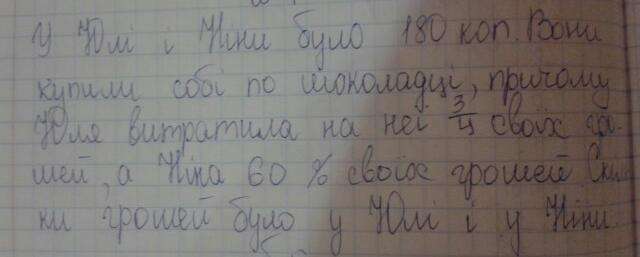 У Юлі і Ніни було 180 коп. Вони
купили собі по шоколадці, причому
Юля витратила на неї 3/4 своїх гро-
шей, а Ніна 60 % своїх грошей Скіль
ки грошей було у Юлі і у Ніни.